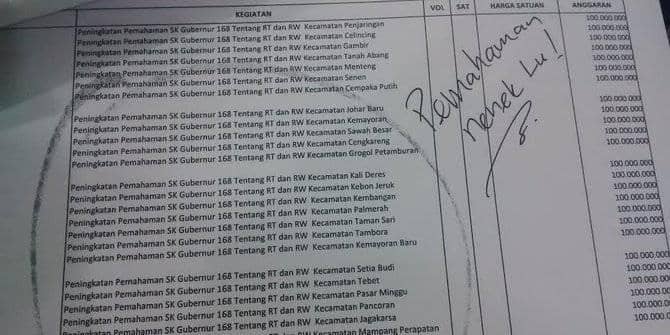 KEGIATAN VOL SAT HARGA SATUAN ANGGARAN
Peningkatan Pemahaman SK Gubernur 168 Tentang RT dan RW Kecamatan Penjaringan 100.000.000
Peningkatan Pemahaman SK Gubernur 168 Tentang RT dan RW Kecamatan Celincing 100.000.000
Peningkatan Pemahaman SK Gubernur 168 Tentang RT dan RW Kecamatan Gambir 100.000.000
Peningkatan Pemahaman SK Gubernur 168 Tentang RT dan RW Kecamatan Tanah Abang 100.000.000
Peningkatan Pemahaman SK Gubernur 168 Tentang RT dan RW Kecamatan Menteng 100.000.000
Peningkatan Pemahaman SK Gubernur 168 Tentang RT dan RW Kecamatan Senen 100.000.000
Peningkatan Pemahaman SK Gubernur 168 Tentang RT dan RW Kecamatan Cempaka Putih
Pemahaman
nenek Lu!
Peningkatan Pemahaman SK Gubernur 168 Tentang RT dan RW Kecamatan Johar Baru 100.000.000
Peningkatan Pemahaman SK Gubernur 168 Tentang RT dan RW Kecamatan Kemayoran 100.000.000
Peningkatan Pemahaman SK Gubernur 168 Tentang RT dan RW Kecamatan Sawah Besar 100.000.000
Peningkatan Pemahaman SK Gubernur 168 Tentang RT dan RW Kecamatan Cengkareng 100.000.000
Peningkatan Pemahaman SK Gubernur 168 Tentang RT dan RW Kecamatan Grogol Petamburan 100.000.000
Peningkatan Pemahaman SK Gubernur 168 Tentang RT dan RW Kecamatan Kali Deres 100.000.000
Peningkatan Pemahaman SK Gubernur 168 Tentang RT dan RW Kecamatan Kebon Jeruk 100.000.000
Peningkatan Pemahaman SK Gubernur 168 Tentang RT dan RW Kecamatan Kembangan 100.000.000
Peningkatan Pemahaman SK Gubernur 168 Tentang RT dan RW Kecamatan Palmerah 100.000.000
Peningkatan Pemahaman SK Gubernur 168 Tentang RT dan RW Kecamatan Taman Sari 100.000.000
Peningkatan Pemahaman SK Gubernur 168 Tentang RT dan RW Kecamatan Tambora 100.000.000
Peningkatan Pemahaman SK Gubernur 168 Tentang RT dan RW Kecamatan Kemayoran Baru 100.000.000
Peningkatan Pemahaman SK Gubernur 168 Tentang RT dan RW Kecamatan Setia Budi 100.000.000
Peningkatan Pemahaman SK Gubernur 168 Tentang RT dan RW Kecamatan Tebet 100.000.000
Peningkatan Pemahaman SK Gubernur 168 Tentang RT dan RW Kecamatan Pasar Minggu 100.000.000
Peningkatan Pemahaman SK Gubernur 168 Tentang RT dan RW Kecamatan Pancoran 100.000.00
Peningkatan Pemahaman SK Gubernur 168 Tentang RT dan RW Kecamatan Jagakarsa 100.000.00
RW Kecamatan Mampang Perapatan 100.000.0